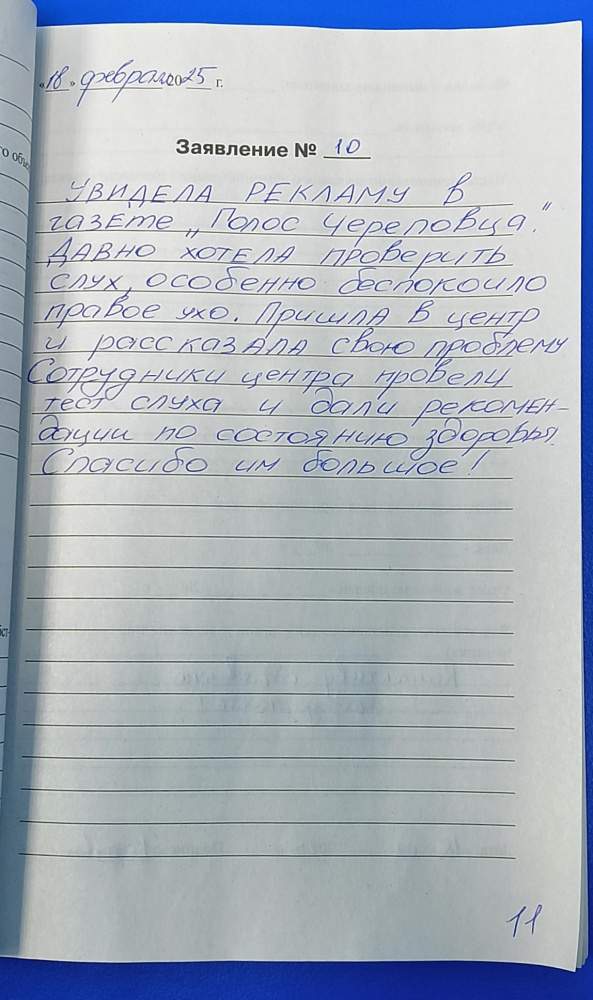 «18» февраля 2025 г.
Заявление № 10
Увидела рекламу в
газете „Голос Череповца".
Давно хотела проверить
слух, особенно беспокоило
правое ухо. Пришла в центр
и рассказала свою проблему
Сотрудники центра провели
тест слуха и дали рекомен-
дации по состоянию здоровья.
Спасибо им большое!
11